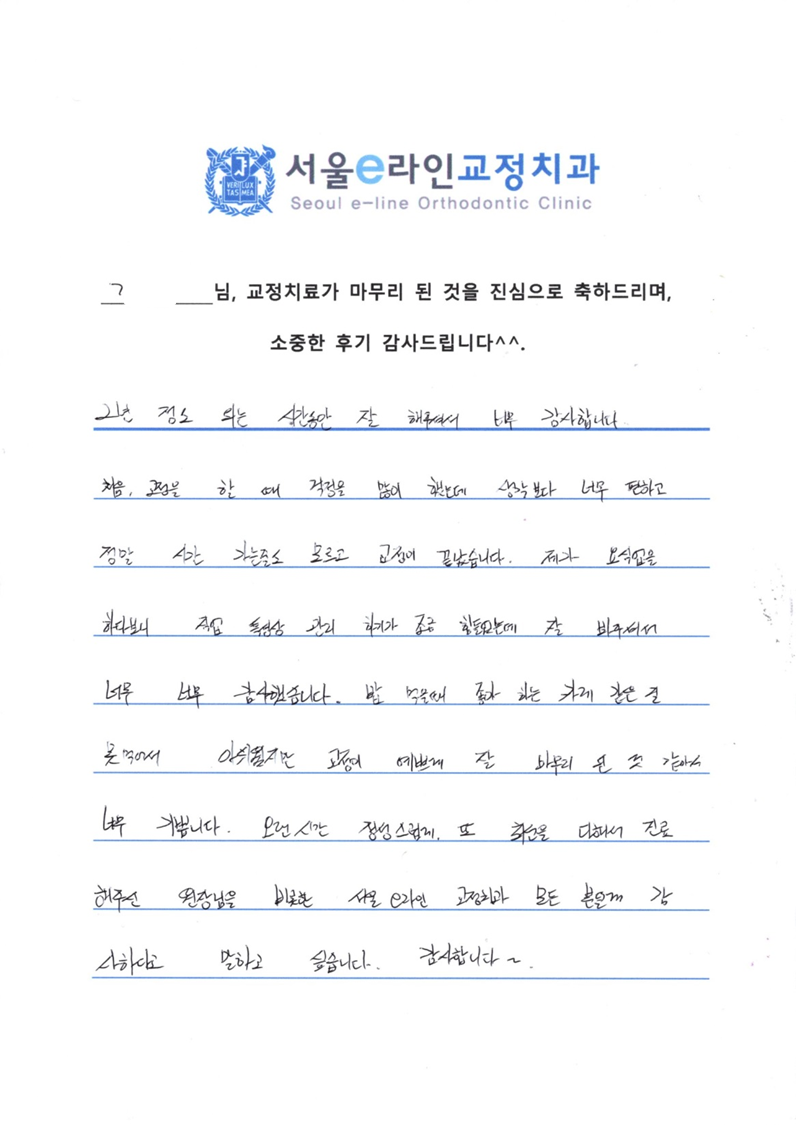 VERI LUX
TAS MEA
서울e라인교정치과
Seoul e-line Orthodontic Clinic
ㄱ ____님, 교정치료가 마무리 된 것을 진심으로 축하드리며,
소중한 후기 감사드립니다^^.
2년 정도 되는 시간동안 잘 해주셔서 너무 감사합니다
처음, 교정을 할 때 걱정을 많이 했는데 생각보다 너무 편하고
정말 시간 가는줄도 모르고 교정이 끝났습니다. 제가 요식업을
하다보니 직업 특성상 관리 하기가 조금 힘들었는데 잘 봐주셔서
너무 너무 감사했습니다. 밥 먹을때 좋아 하는 카레 같은 걸
못먹어서 아쉬웠지만 교정이 예쁘게 잘 마무리 된 것 같아서
너무 기쁩니다. 오랜시간 정성스럽게, 또 최선을 다해서 진료
해주신 원장님을 비롯한 서울 e라인 교정치과 모든 분들께 감
사하다고 말하고 싶습니다. 감사합니다~.